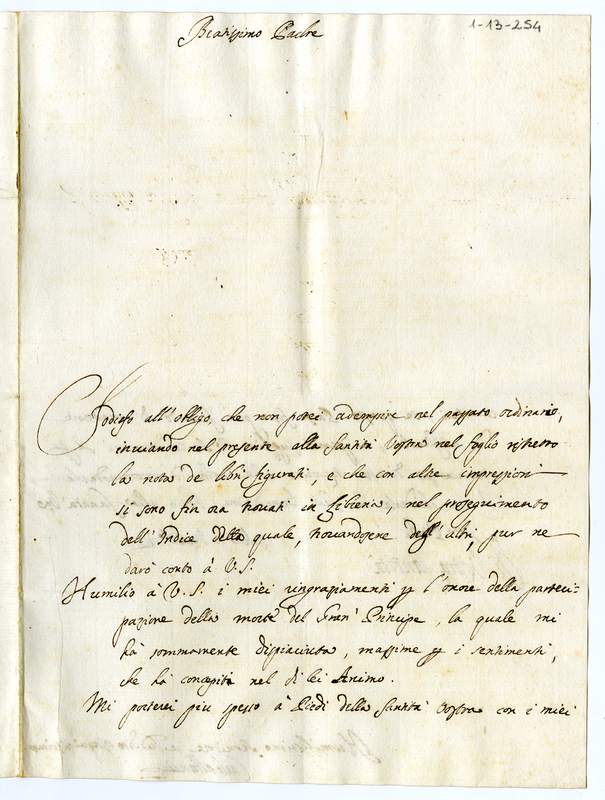 1-13-254
Beatissimo Padre
Sodisfo all'obligo, che non potei adempire nel passato ordinario,
inviando nel presente alla Santità Vostra nel foglio ristretto
la nota de libri figurati, e che con altre impressioni
si sono fin ora trovati in Libreria, nel proseguimento
dell'Indice della quale, trovandosene degl'altri, pur ne
darò conto à V. S.
Humilio à V. S. i miei ringraziamenti p l'onore della parteci-
pazione della morte del Gran Principe, la quale mi
hà sommamente dispiaciuta, massime p i sentimenti,
che hà concepiti nel di lei Animo.
Mi porterei più spesso à Piedi della Santità Vostra con i miei